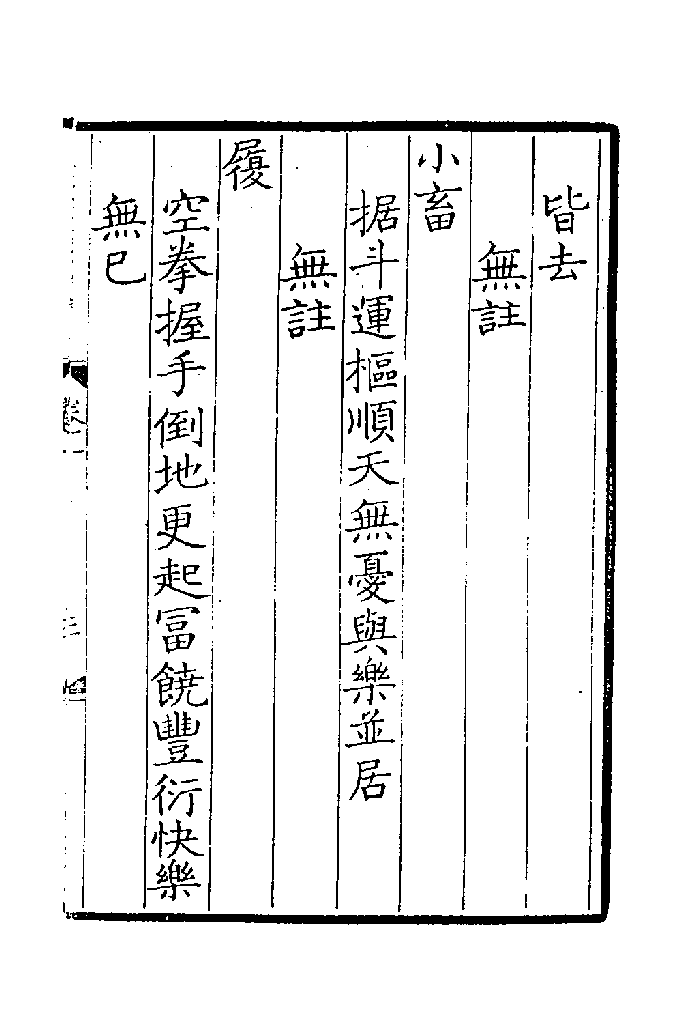 皆去
無註
小畜
据斗運樞順天無憂與樂並居
無註
履
空拳握手倒地更起冨饒豐衍快樂
無已
卷一